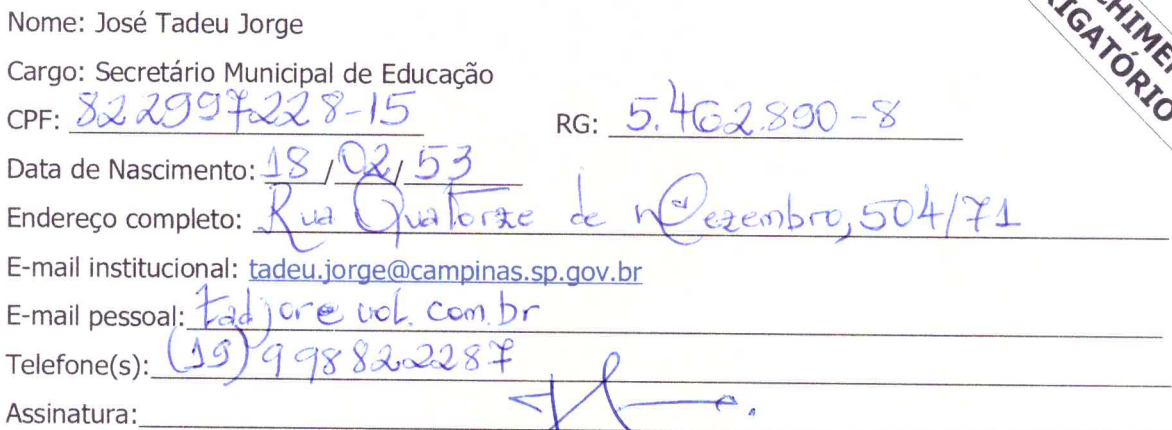 Nome: José Tadeu Jorge
Cargo: Secretário Municipal de Educação
CPF: 822997228-15 RG: 5.462.890-8
Data de Nascimento: 18/02/53
Endereço completo: Rua Quatorze de Dezembro, 504/71
E-mail institucional: tadeu.jorge@campinas.sp.gov.br
E-mail pessoal: uol.com.br
Telefone(s): (19) 998822287
Assinatura: